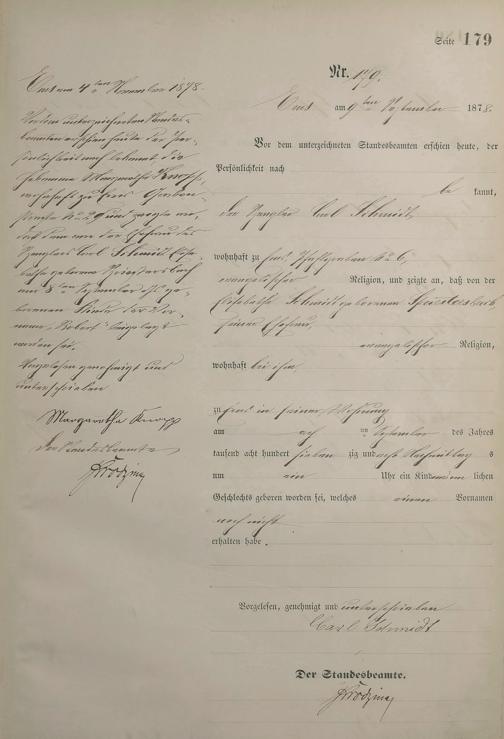 Seite 179
Nr. 179.
Ems am 9ten September 1878.
Vor dem unterzeichneten Standesbeamten erschien heute, der
Persönlichkeit nach
be kannt,
der Carl Schmidt,
wohnhaft zu Ems No 6,
evangelischer Religion, und zeigte an, daß von der
Elisabetha Schmidt geborenen
seiner Ehefrau,
evangelischer Religion,
wohnhaft bei ihm,
zu Ems in seiner Wohnung
am acht ten September des Jahres
tausend acht hundert sieben zig und acht Nachmittag s
um ein Uhr ein Kind männ lichen
Geschlechts geboren worden sei, welches einen Vornamen
noch nicht
erhalten habe.
Vorgelesen, genehmigt und unterschrieben
Carl Schmidt
Der Standesbeamte.
Ems am 4ten November 1878.
Vor dem unterzeichneten Standes-
beamten erschien heute der Per-
sönlichkeit nach bekannt die
Hebamme Margaretha Knopp,
wohnhaft zu Ems
No 29 und zeigte an,
daß dem von der Ehefrau des
Carl Schmidt Elisa-
betha geborene
am 8ten September ge-
borenen Kinde der Vor-
name „Robert“ beigelegt
worden sei.
Vorgelesen genehmigt und
unterschrieben
Margaretha Knopp
Der Standesbeamte